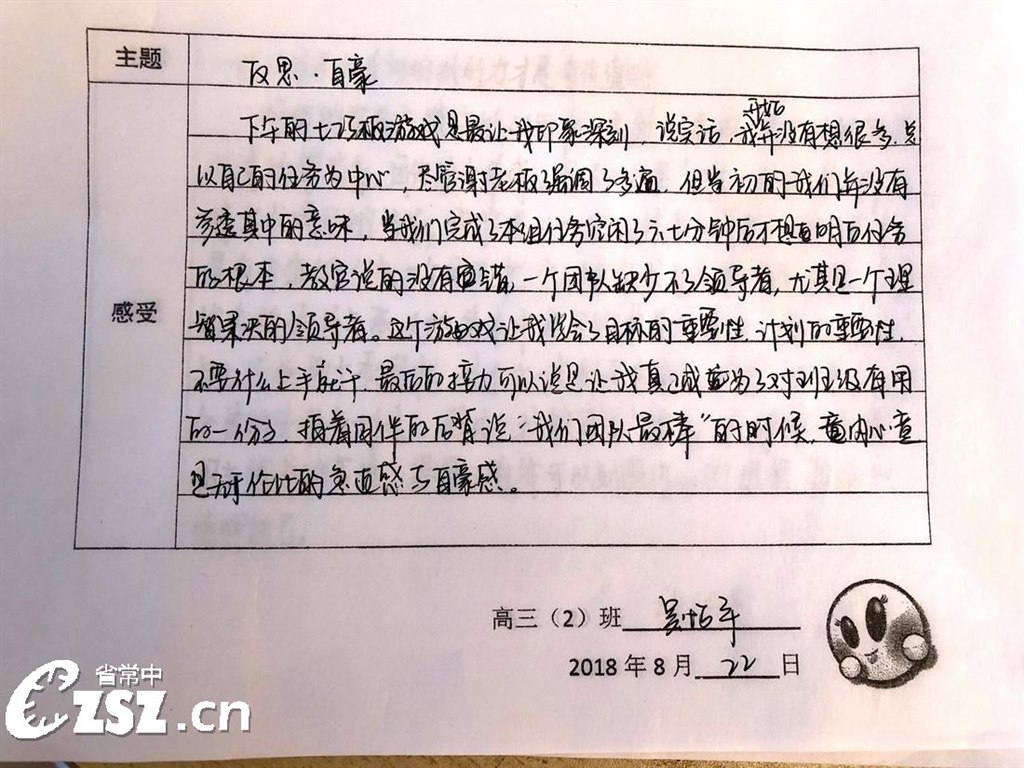 主题
反思·自豪
开始
下午的七巧板游戏是最让我印象深刻,说实话,我并没有想很多,总
以自己的任务为中心,尽管谢老板强调了多遍,但当初的我们并没有
参透其中的意味,当我们完成了本组任务空闲了六七分钟后才想明白任务
的根本,教官说的没有错,一个团队缺少不了领导者,尤其是一个理
智果决的领导者。这个游戏让我学会了目标的重要性,计划的重要性,
不要什么上手就干,最后的接力可以说是让我真正成为了对班级有用
的一份子,拍着同伴的后背说:“我们团队最棒”的时候,内心
是无与伦比的感与自豪感。
感受
高三(2)班
2018年8月22日
省常中
CZSZ.cn